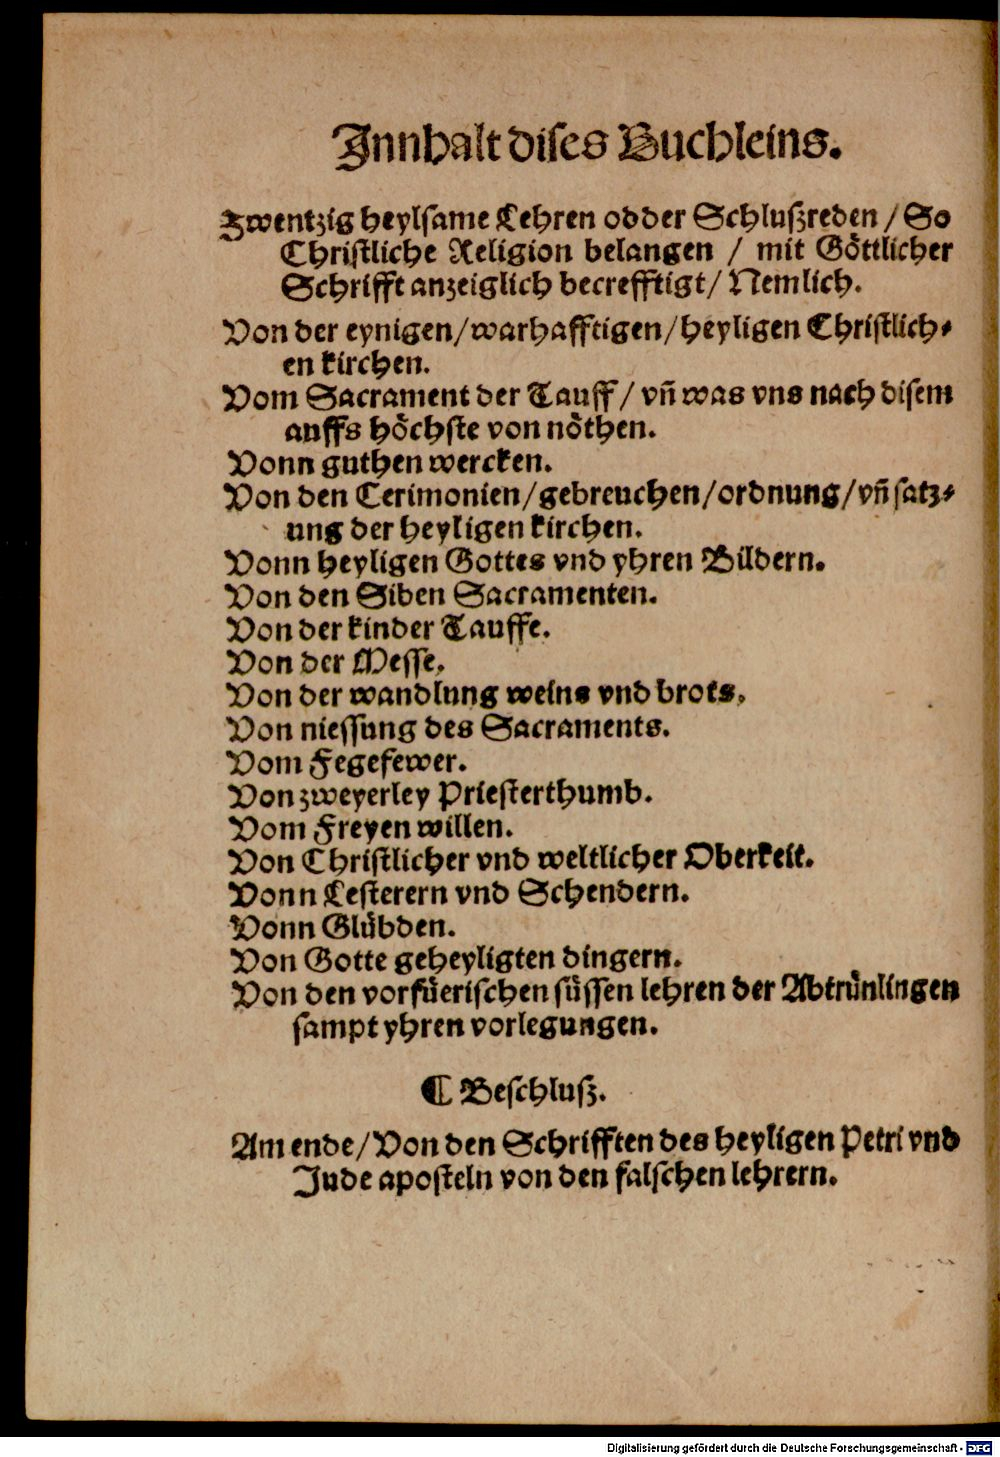 Innhalt dises Buchleins.
Zwentzig heylsame Lehren odder Schluszreden / So
Christliche Religion belangen / mit Göttlicher
Schrifft anzeiglich becrefftigt / Nemlich.
Von der eynigen / warhafftigen / heyligen Christlich⸗
en kirchen.
Vom Sacrament der Tauff / vñ was vns nach disem
auffs höchste von nöthen.
Vonn guthen wercken.
Von den Cerimonien / gebreuchen / ordnung / vñ satz⸗
ung der heyligen kirchen.
Vonn heyligen Gottes vnd yhren Bildern.
Von den Siben Sacramenten.
Von der kinder Tauffe.
Von der Messe.
Von der wandlung weins vnd brots.
Von niessung des Sacraments.
Vom Fegefewer.
Von zweyerley Priesterthumb.
Vom Freyen willen.
Von Christlicher vnd weltlicher Oberkeit.
Vonn Lesterern vnd Schendern.
Vonn Glübden.
Von Gotte geheyligten dingern.
Von den vorfüerischen süssen lehren der Abtrünlingen
sampt yhren vorlegungen.
¶ Beschlusz.
Am ende / Von den Schrifften des heyligen Petri vnd
Jude aposteln von den falschen lehrern.
Digitalisierung gefördert durch die Deutsche Forschungsgemeinschaft - DFG